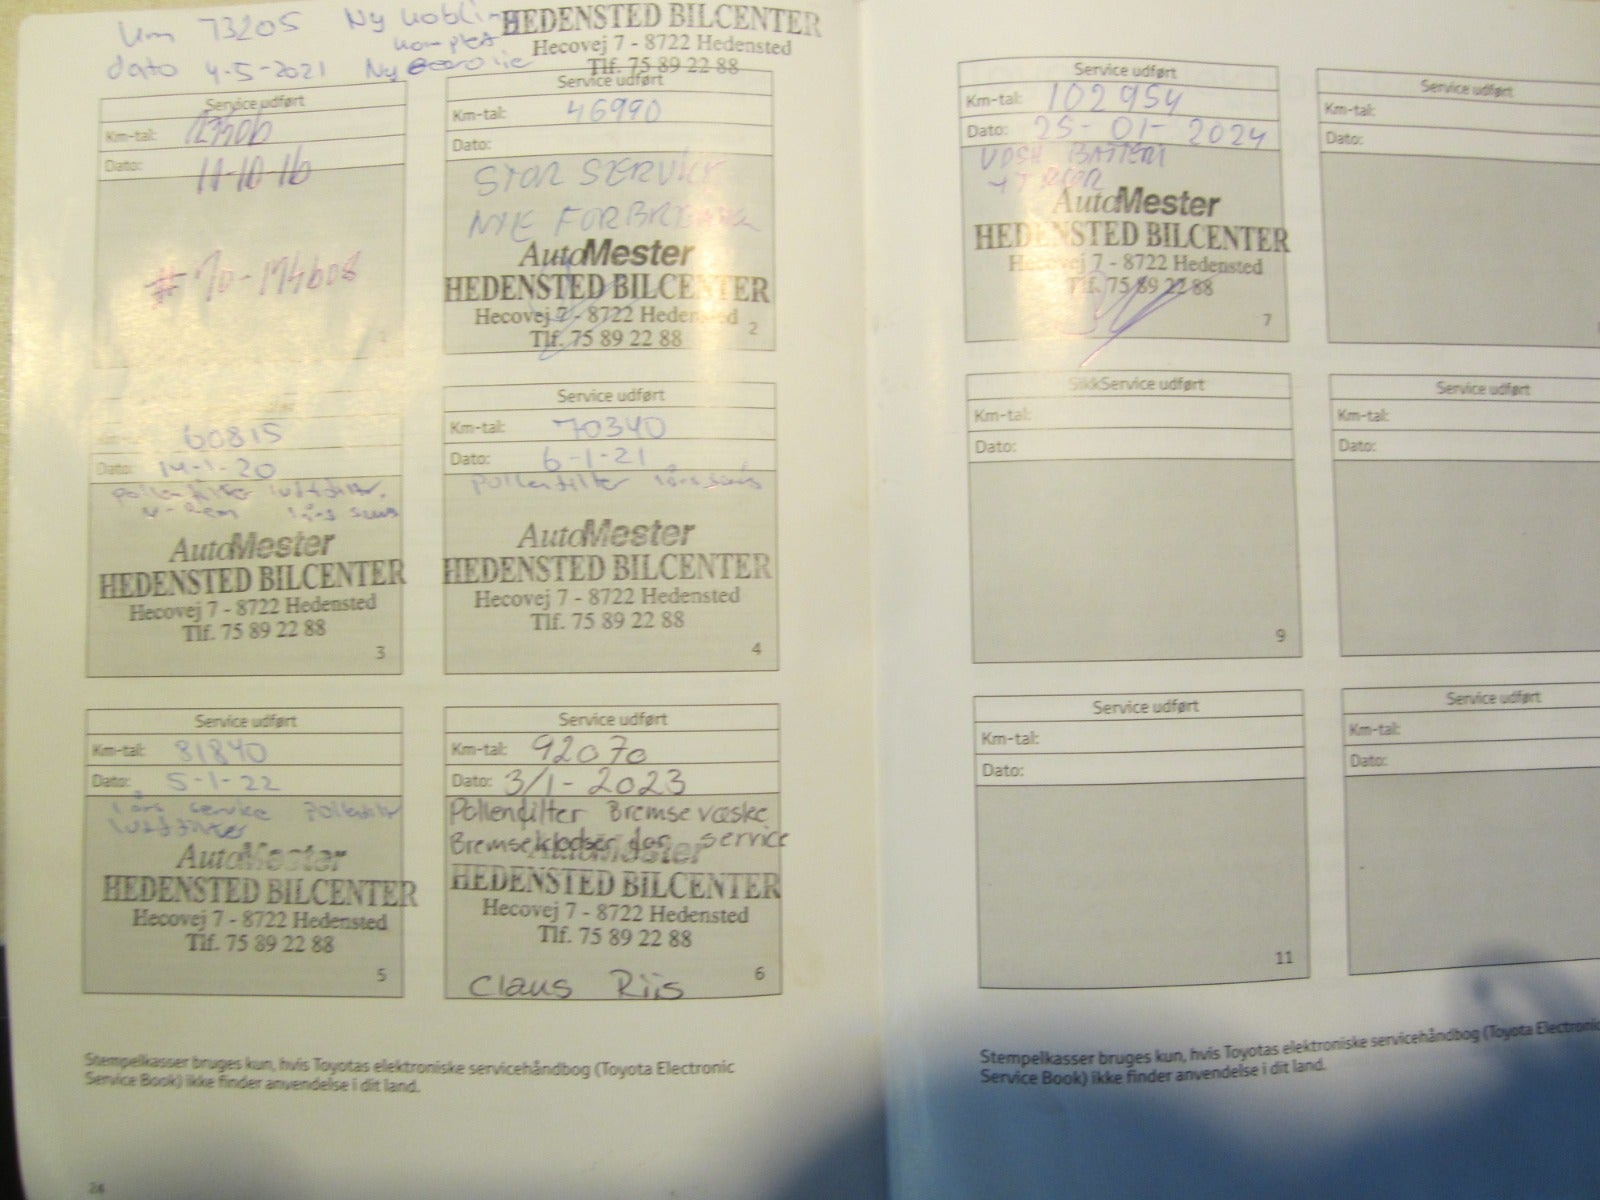 Km 73205 Ny kobling
komplet
dato 4-5-2021 Ny
HEDENSTED BILCENTER
Hecovej 7 - 8722 Hedensted
Tlf. 75 89 22 88
Service udført
Km-tal:
Dato: 11-10-16
# 70-174608
Service udført
Km-tal: 46990
Dato:
STOR SERVICE
NYE
AutoMester
HEDENSTED BILCENTER
Hecovej 7 - 8722 Hedensted
Tlf. 75 89 22 88
2
60815
Dato: 14-1-20
Pollenfilter luftfilter,
AutoMester
HEDENSTED BILCENTER
Hecovej 7 - 8722 Hedensted
Tlf. 75 89 22 88
3
Service udført
Km-tal: 70340
Dato: 6-1-21
Pollenfilter
AutoMester
HEDENSTED BILCENTER
Hecovej 7 - 8722 Hedensted
Tlf. 75 89 22 88
4
Service udført
Km-tal: 81840
Dato: 5-1-22
1 års service Pollenfilter
luftfilter
AutoMester
HEDENSTED BILCENTER
Hecovej 7 - 8722 Hedensted
Tlf. 75 89 22 88
5
Service udført
Km-tal: 92070
Dato: 3/1-2023
Pollenfilter Bremsevæske
Bremseklodser for service
AutoMester
HEDENSTED BILCENTER
Hecovej 7 - 8722 Hedensted
Tlf. 75 89 22 88
Claus Riis
6
Stempelkasser bruges kun, hvis Toyotas elektroniske servicehåndbog (Toyota Electronic
Service Book) ikke finder anvendelse i dit land.
26
Service udført
Km-tal: 102954
Dato: 25-01-2024
BATTERI
AutoMester
HEDENSTED BILCENTER
Hecovej 7 - 8722 Hedensted
Tlf. 75 89 22 88
7
Service udført
Km-tal:
Dato:
Service udført
Km-tal:
Dato:
9
Service udført
Km-tal:
Dato:
Service udført
Km-tal:
Dato:
11
Service udført
Km-tal:
Dato:
Stempelkasser bruges kun, hvis Toyotas elektroniske servicehåndbog (Toyota Electronic
Service Book) ikke finder anvendelse i dit land.